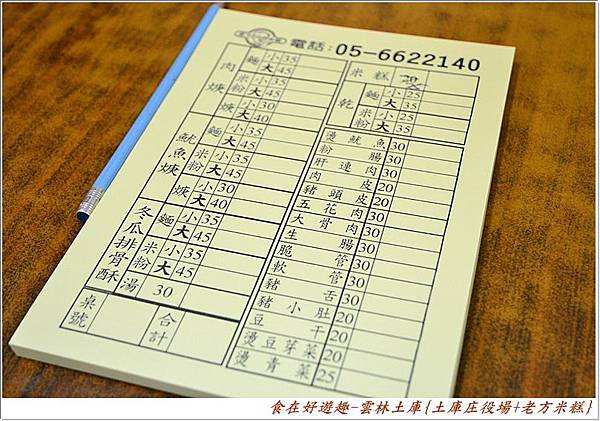 電話:05-6622140
肉焿
麵 小35
大45
米粉 小35
大45
焿 小30
大40
魷魚焿
麵 小35
大45
米粉 小35
大45
焿 小30
大40
冬瓜排骨酥
麵 小35
大45
米粉 小35
大45
湯 30
桌號
合計
米糕
乾
麵 小25
大35
米粉 小25
大35
燙魷魚30
粉腸30
肝連肉30
肉皮20
豬頭皮20
五花肉30
大骨肉30
生腸30
脆管30
軟管30
豬舌30
豬小肚20
豆干20
燙豆芽菜20
燙青菜25
食在好遊趣-雲林土庫{土庫庄役場+老方米糕}